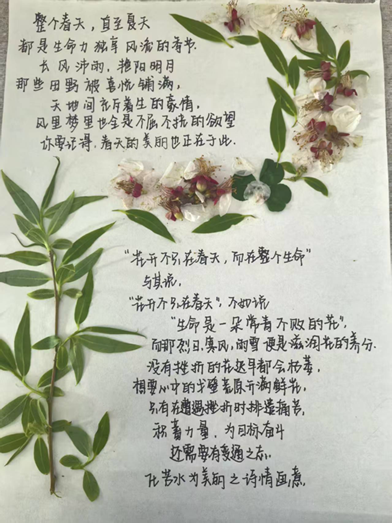 整个春天，直至夏天
都是生命力独享风流的季节.
长风沛雨，艳阳明月
那些田野被喜悦铺满，
天地间充斥着生的豪情，
风里梦里也全是不屈不挠的欲望
你要记得.春天的美丽也正在于此.
"花开不只在春天，而在整个生命"
与其说，
"花开不只在春天"，不如说
"生命是一朵常青不败的花"，
而那烈日、寒风、的雪便是滋润花的养分.
没有挫折的花迟早都会枯萎，
想要心中的戈壁荒原开满鲜花，
只有在遭遇挫折时排遣痛苦，
积蓄力量，为目标奋斗
还需要有变通之态.
化苦水为美丽之诗情画意.